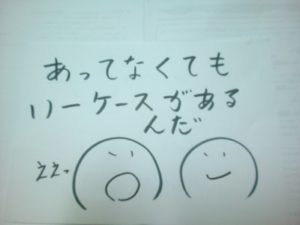 あってなくても
いーケースがある
んだ
ええっ